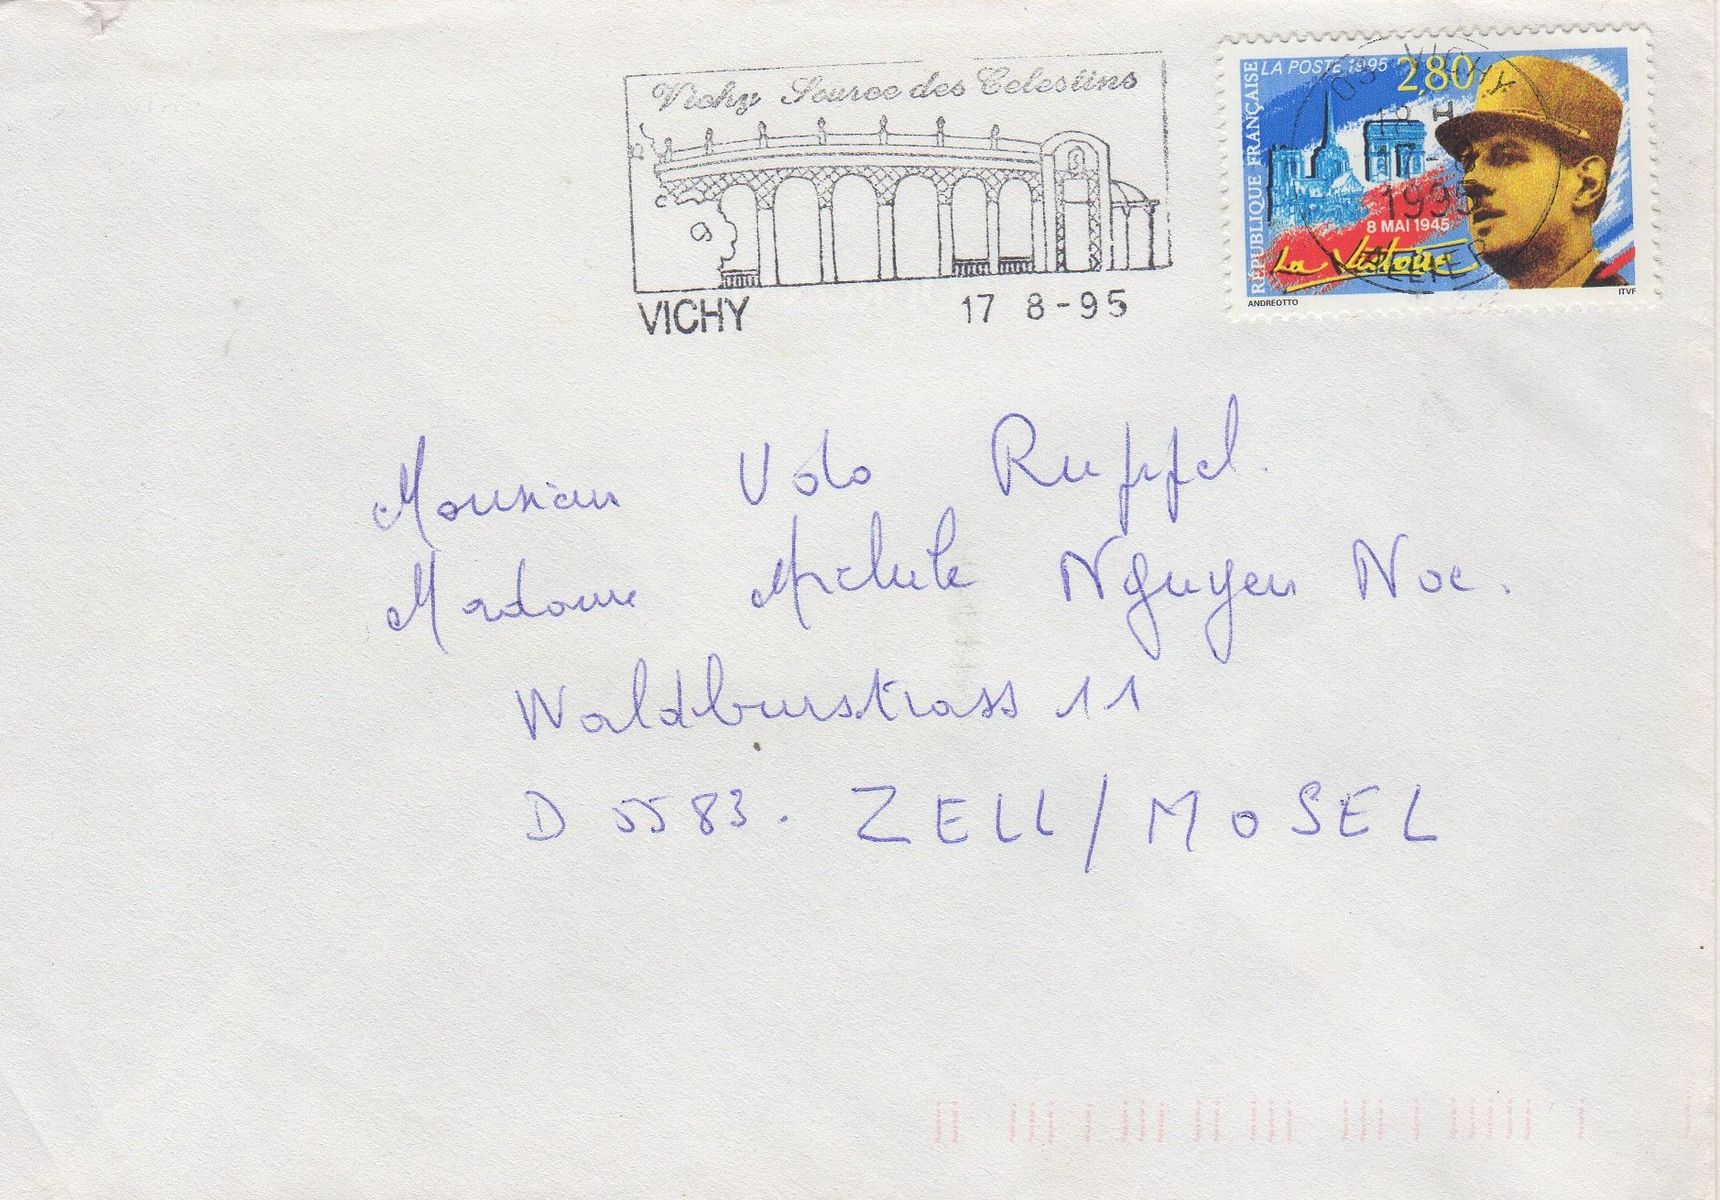 Vichy Source des Celestins
VICHY 17 8-95
RÉPUBLIQUE FRANÇAISE
LA POSTE 1995 2,80
VICHY
18 H
17-8
1995
ALLIER
8 MAI 1945
La Victoire
ANDREOTTO ITVF
Monsieur Udo Ruppel.
Madame Michele Nguyen Noc.
Waldburstrass 11
D 5583. ZELL/MOSEL